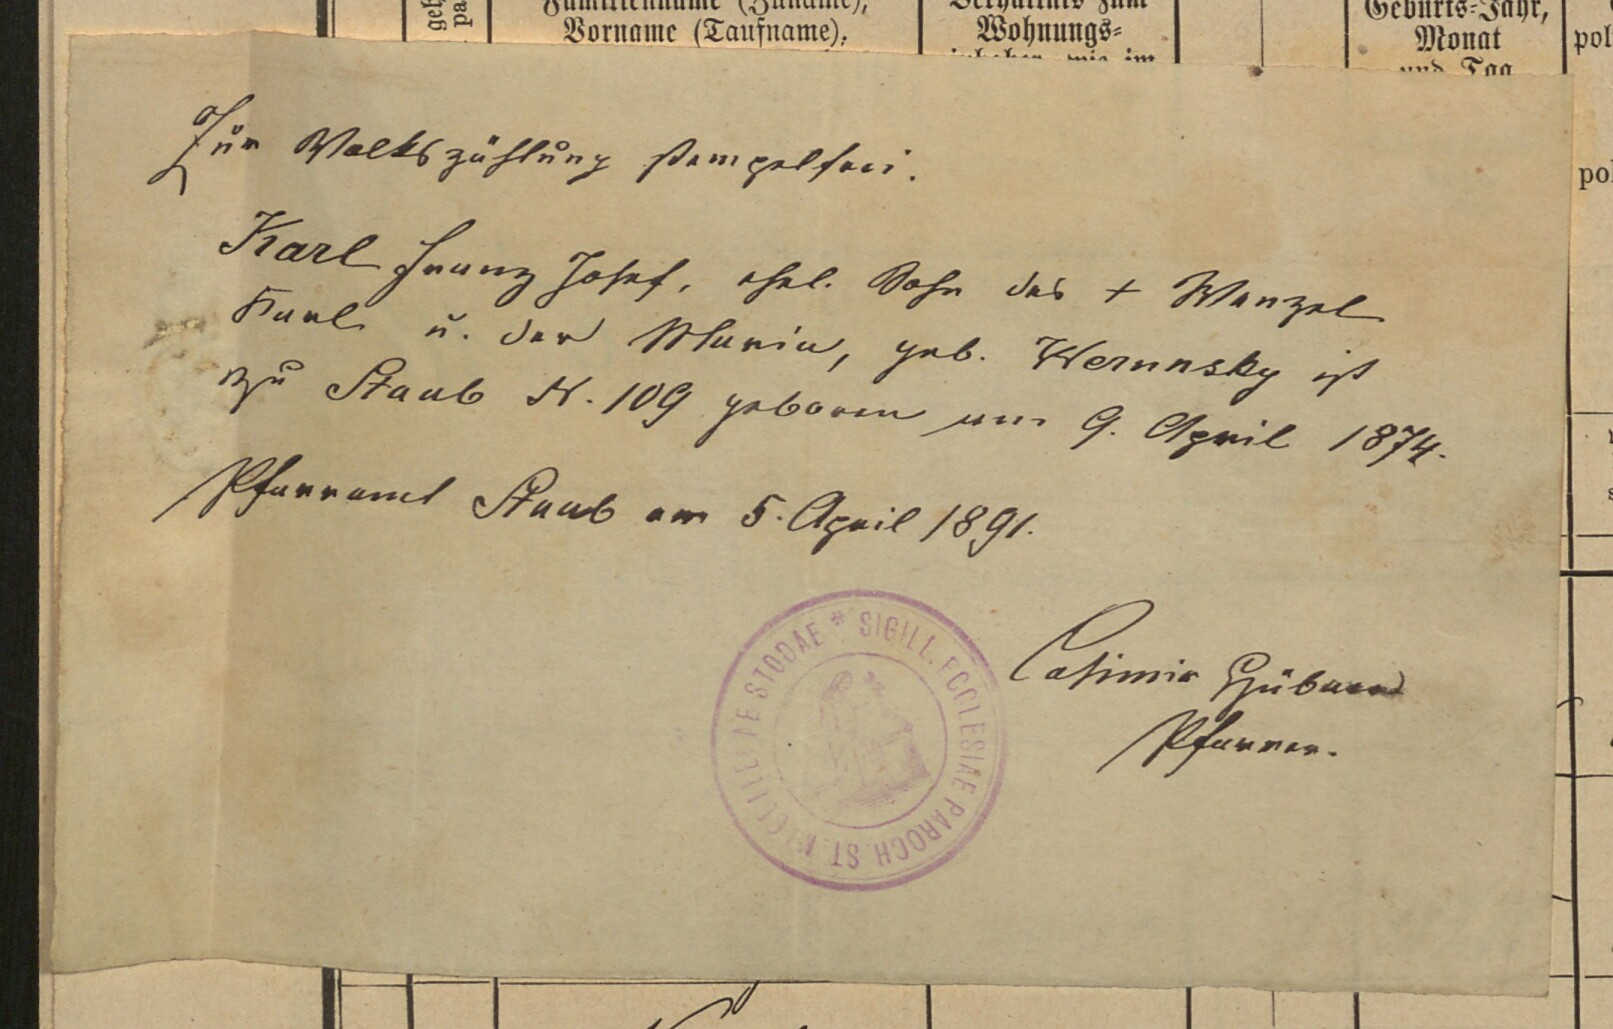 Familienname (Zuname),
Vorname (Taufname),
Verhältnis zum
Wohnungs-
inhaber, wie im
Geburts-Jahr,
Monat
und Tag
pol
pol
Zur Volkszählung stempelfrei.
Karl Franz Josef, ehel. Sohn des + Wenzel
Karl u. der Maria, geb. Werunsky ist
zu Staab N. 109 geboren am 9. April 1874.
Pfarramt Staab am 5. April 1891.
* SIGILL. ECCLESIAE PAROCH. ST. STODAE
Casimir Hübner
Pfarrer.